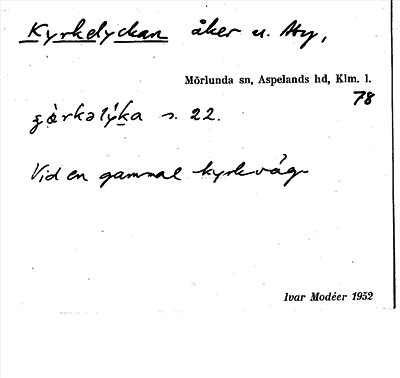 Kyrkelyckan åker u. Aby,
Mörlunda sn, Aspelands hd, Klm. l.
78
s. 22.
Vid en gammal kyrkväg
Ivar Modéer 1952